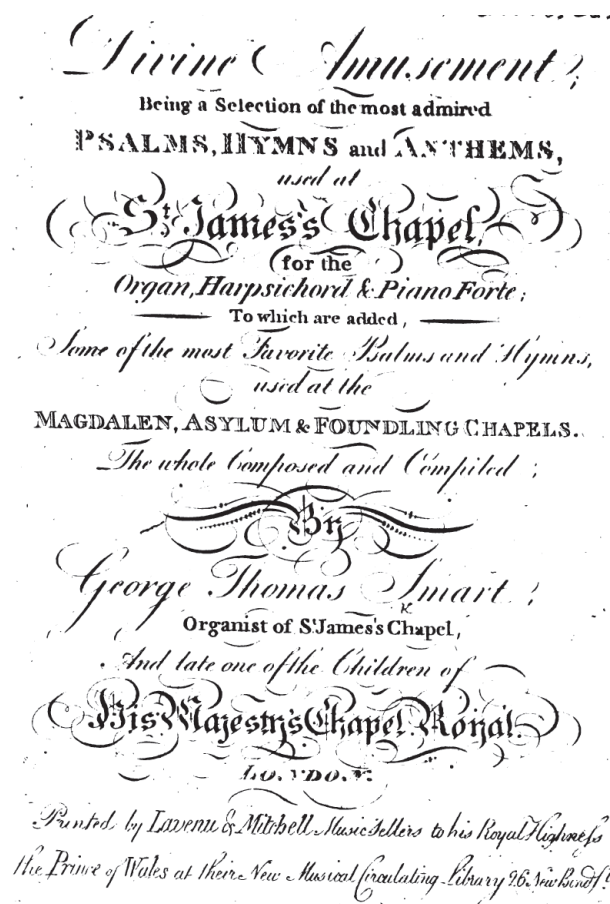 Divine Amusement;
Being a Selection of the most admired
PSALMS, HYMNS and ANTHEMS,
used at
St. James's Chapel,
for the
Organ, Harpsichord & Piano Forte;
To which are added,
Some of the most Favorite Psalms and Hymns,
used at the
MAGDALEN, ASYLUM & FOUNDLING CHAPELS.
The whole Composed and Compiled;
By
George Thomas Smart;
Organist of St. James's Chapel,
And late one of the Children of
His Majesty's Chapel Royal.
LONDON.
Printed by Lavenu & Mitchell Music Sellers to his Royal Highness
the Prince of Wales at their New Musical Circulating Library 26 New Bond St.